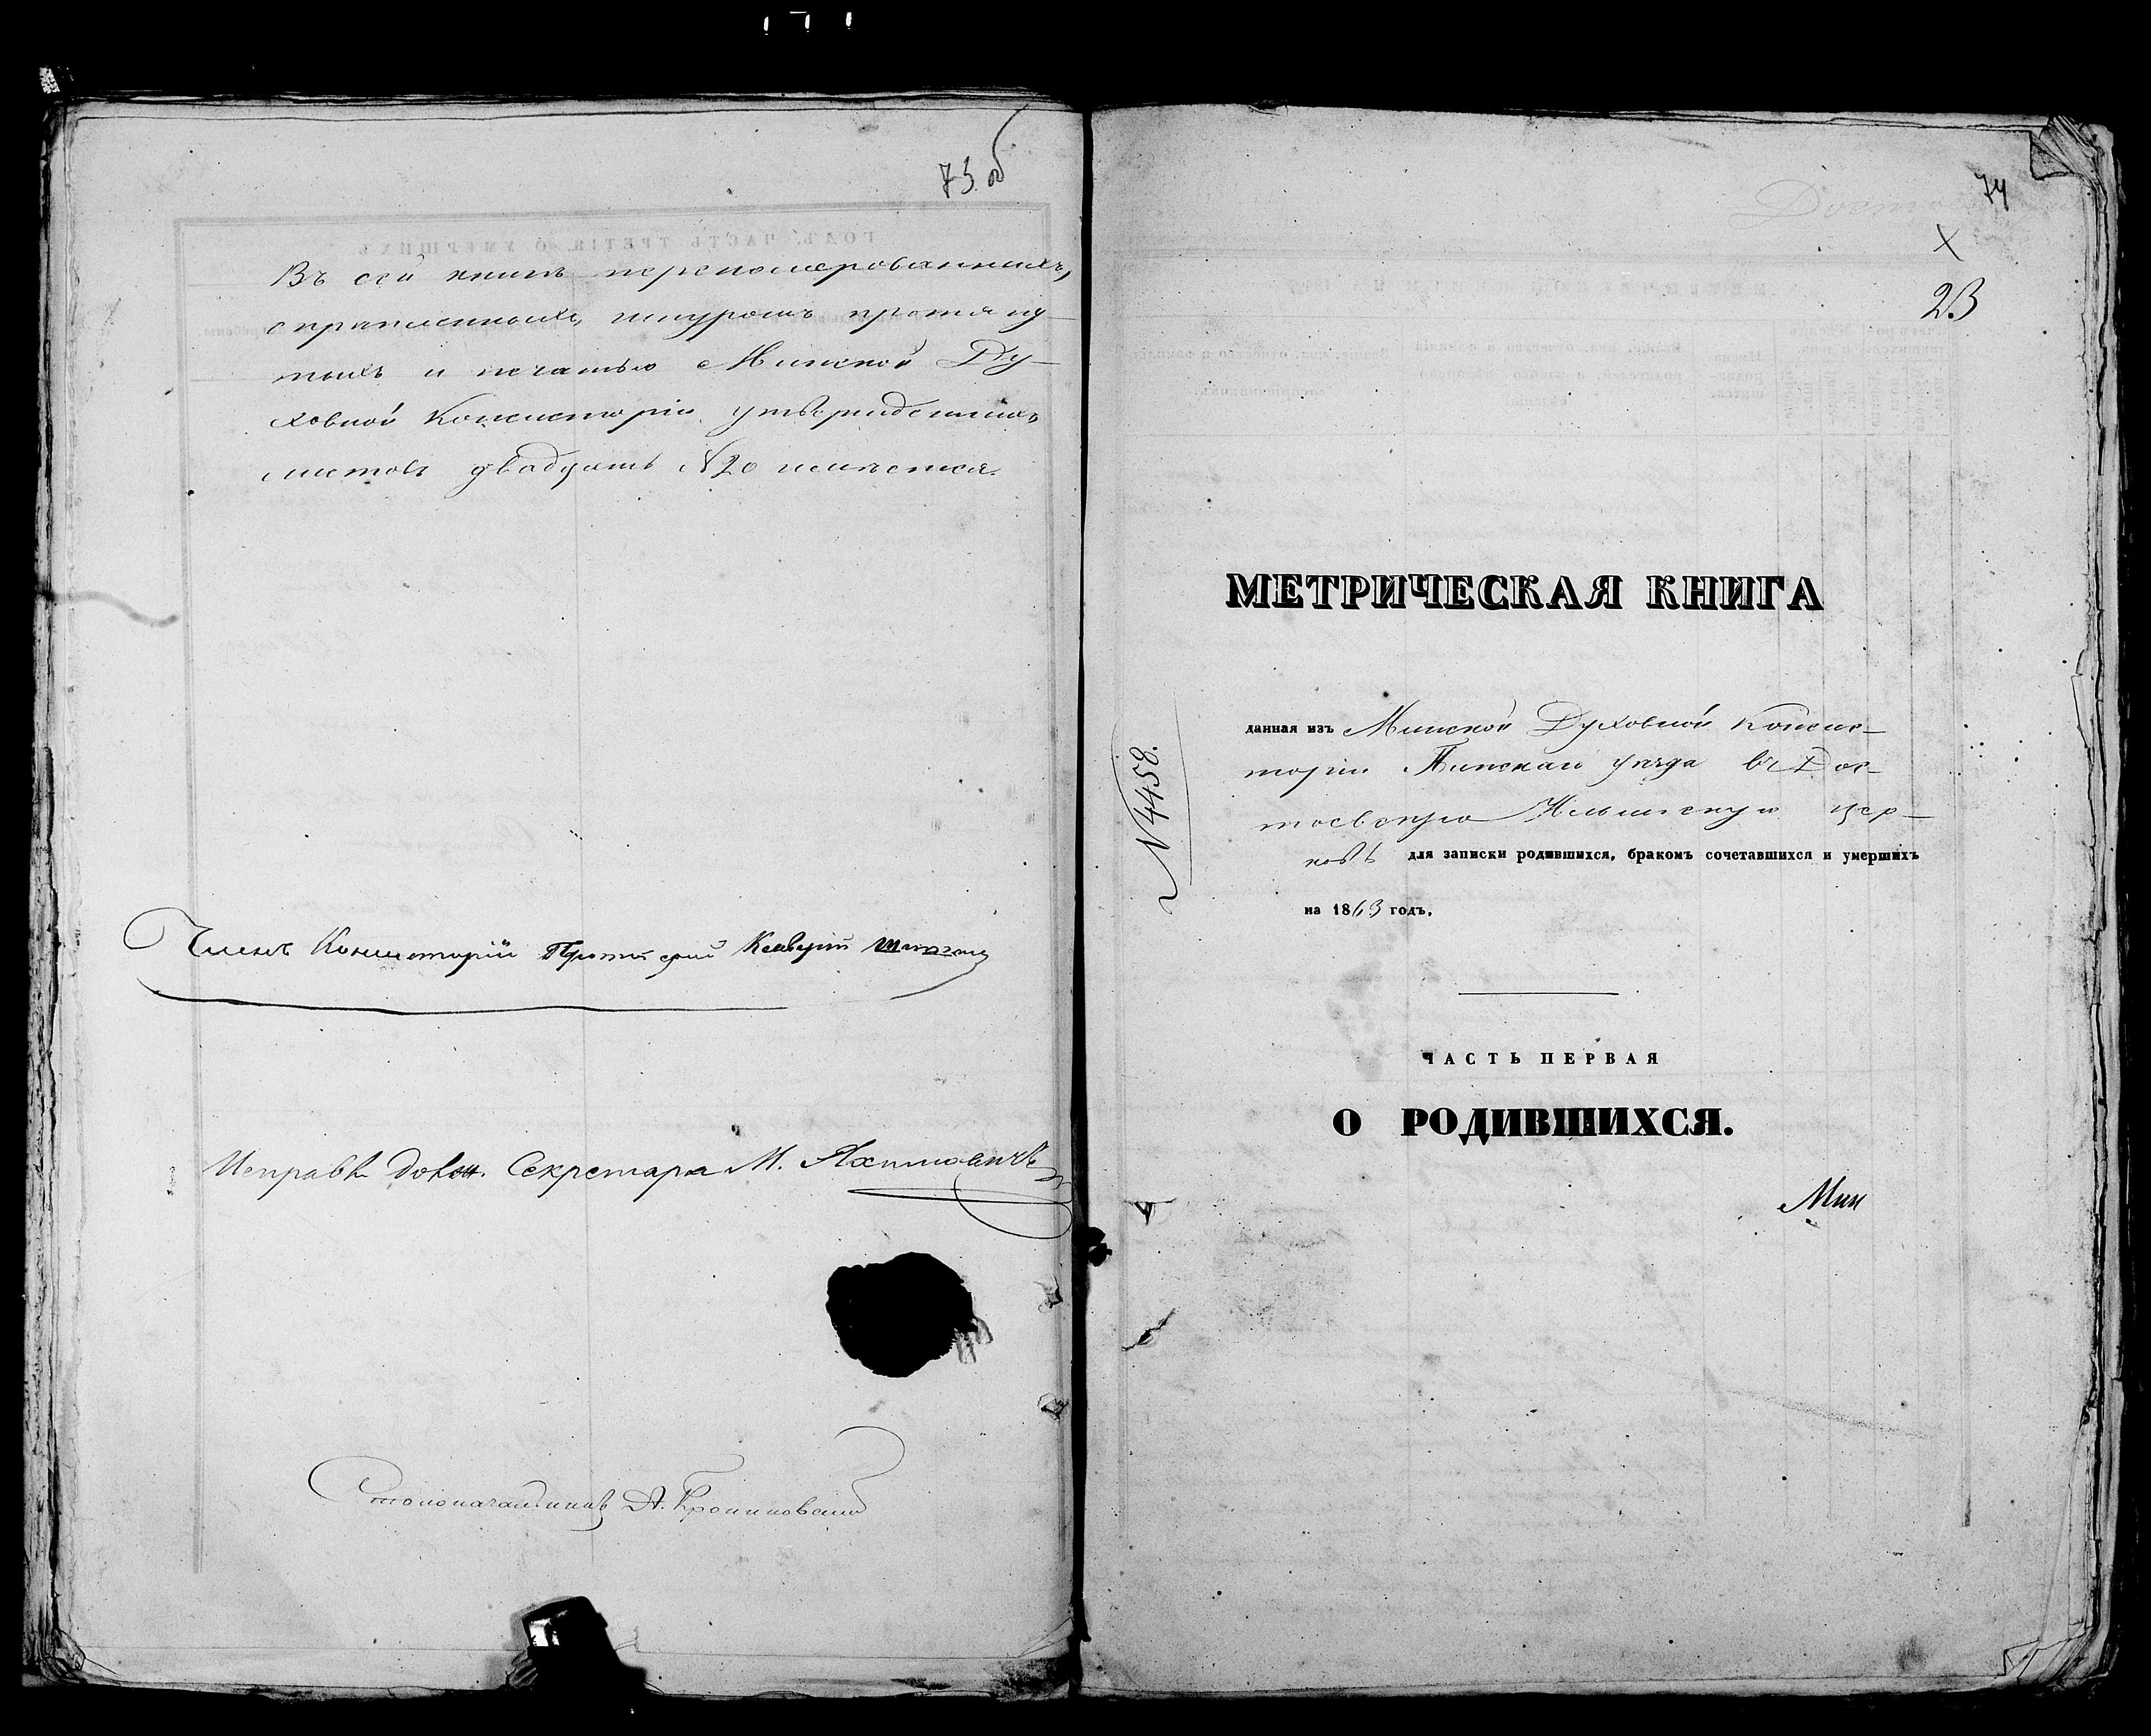 73 об
Въ сей книгѣ перенумерованныхъ,
скрѣпленныхъ, шнуромъ протяну-
тыхъ и печатью Минской Ду-
ховной Консисторіи утвержденныхъ
листовъ двадцать №20 имѣется.
Членъ Консисторіи Протоіерей
Исправл. должн. Секретаря М.
Столоначальникъ А.
74
23
МЕТРИЧЕСКАЯ КНИГА
№ 4458.
данная изъ Минской Духовной Консис-
торіи Пинскаго уѣзда въ Дос-
тоевскую Ильинскую цер-
ковь для записки родившихся, бракомъ сочетавшихся и умершихъ
на 1863 годъ.
ЧАСТЬ ПЕРВАЯ
О РОДИВШИХСЯ.
Мин